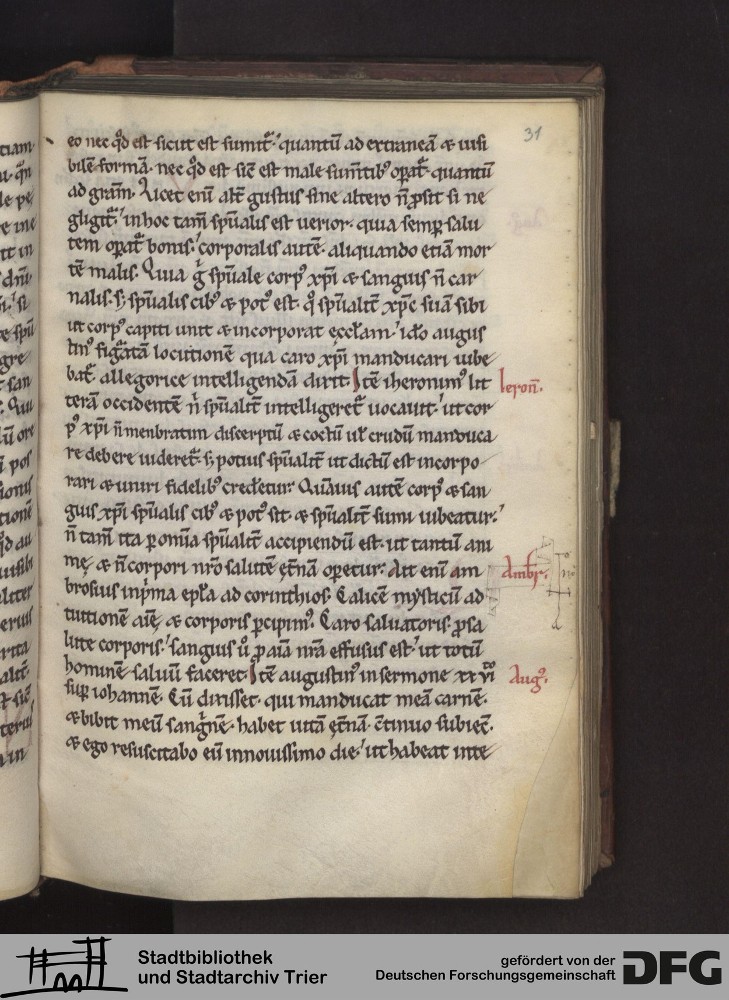 31
eo nec qd̓ est sicut est sumit᷑. quantū ad extraneā & uisi
bilē formā. nec qd̓ est sic̄ est male sum̄tib᷒ opat᷑. quantū
ad grām. Licet enī alt̄ gustus sine altero n̄ ꝓsit si ne
gligit᷑. in hoc tam̄ spūalis est uerior. quia semp salu
tem opat᷑ bonis. corporalis autē. aliquando etiā mor
tē malis. Quia g̊ spūale corp᷒ xpī & sanguis n̄ car
nalis. s; spūalis cib᷒ & pot᷒ est. q̊ spūalit̄ xpc̄ suā sibi
ut corp᷒ capiti unit & incorporat eccłam. ido augus
tin᷒ figͣtam locutionē qua caro xpī manducari iube
bat᷑. allegorice intelligendā dixit. Itē iheronim᷒ lit
terā occidentē n̄ spūalit̄ intelligeret᷑ uocauit. ut cor
p᷒ xpī n̄ menbratim discerptū & coctū ul̄ crudū manduca
re debere uideret᷑. s; potius spūalit̄ ut dictū est incorpo
rari & uniri fidelib᷒ credetur. Quāuis autē corp᷒ & san
guis xpī spūalis cib᷒ & pot᷒ sit. & spūalit̄ sumi iubeatur.
n̄ tam̄ ita ꝑ omīa spūalit̄ accipiendū est. ut tantū ani
mę. & n̄ corpori nr̄o salutē et̄nā opetur. Ait enī am
brosius in pͥma epła ad corinthios. Calicē mysticū ad
tuitionē aīę & corporis ꝑcipim᷒. Caro saluatoris ꝓ sa
lute corporis. sanguis ů ꝓ aīa nr̄a effusus est. ut totū
hominē saluū faceret. Itē augustin᷒ in sermone xx vi
sup iohannē. Cū dixisset. qui manducat meā carnē.
& bibit meū sangͥnē. habet uitā et̄nā. c̄tinuo subiec̄.
& ego resuscitabo eū in nouissimo die. ut habeat inte
Ieron̄.
Ambr̄.
Aug᷒.
Stadtbibliothek
und Stadtarchiv Trier
gefördert von der
Deutschen Forschungsgemeinschaft
DFG